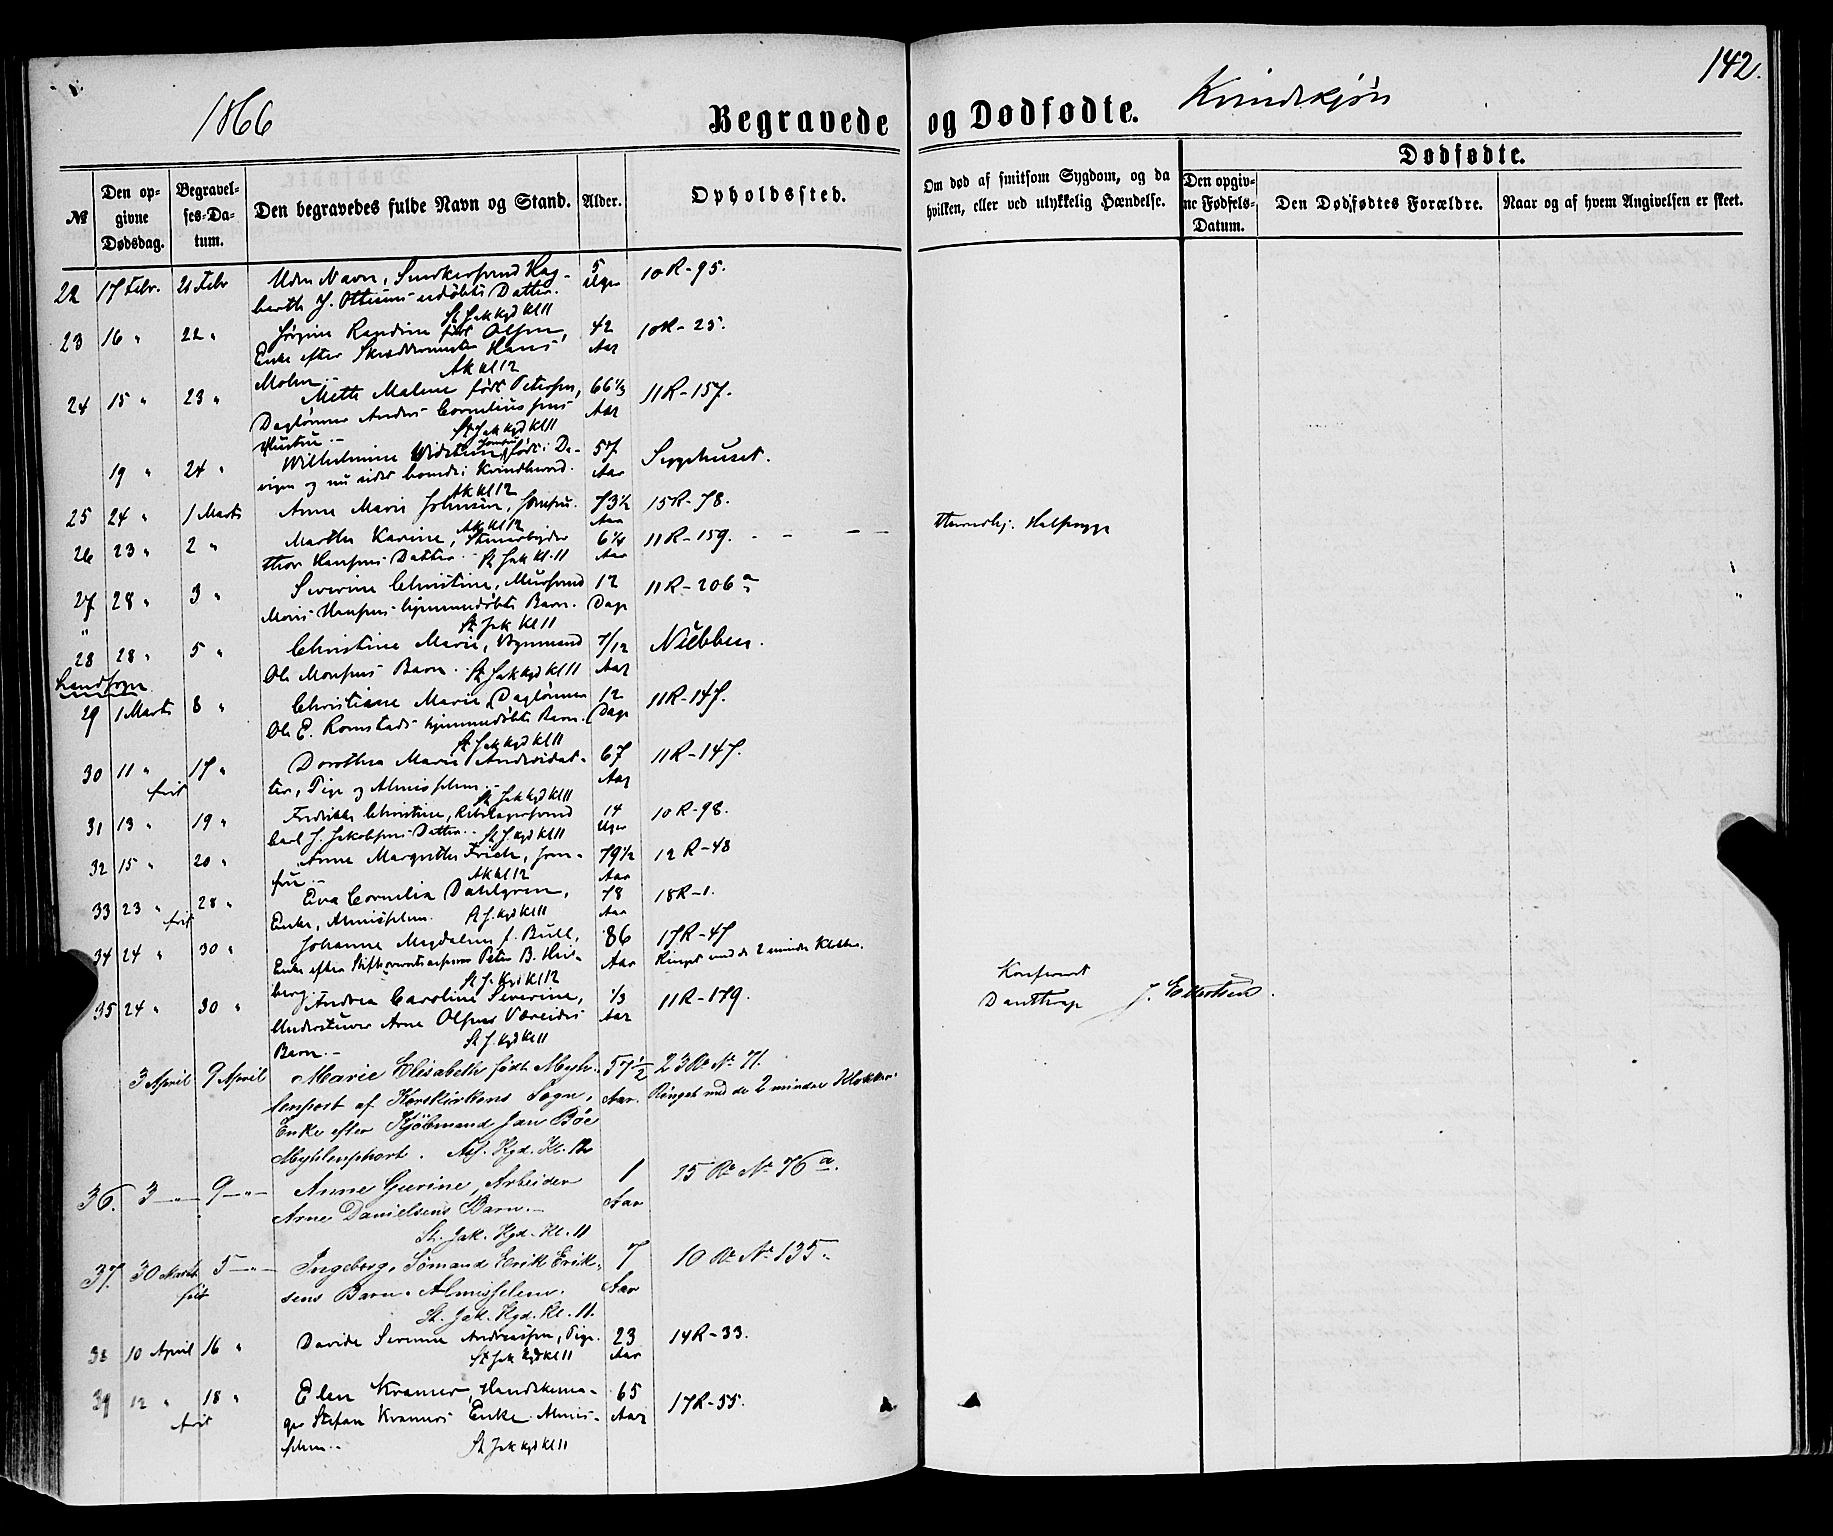 142.
1866
Begravede og Dødfødte. Kvindekjøn
№
Den opgivne Dødsdag.
Begravelses-Datum.
Den begravedes fulde Navn og Stand.
Alder.
Opholdssted.
Om død af smitsom Sygdom, og da hvilken, eller ved ulykkelig Hændelse.
Dødfødte.
Den opgivne Fødsels-Datum.
Den Dødfødtes Forældre.
Naar og af hvem Angivelsen er skeet.
22 17 Febr. 21 Febr Uden Navn, Snedkersvend Hag- 5 10R-95.
barth J. Ottesens udøbte Datter. Uger
St Jak Kgd Kl 11
23 16 " 22 " Jørgine Randine født Olsen, 42 10R-25.
Enke efter Skræddermester Hans Aar
Mohn.- AK kl 12
24 15 " 23 " Mette Malene født Petersen, 66 1/3 11R-157.
Daglønner Anders Corneliussens Aar
Hustru.- St Jak Kgd Kl 11
19 " 24 " Wilhelmine Jomfru, født i De- 57 Sygehuset.
vigen og nu sidst boende i Kvindherred. Aar
AK kl 12
25 24 " 1 Marts Anne Marie Johnsen, Jomfru. 73 1/2 15R-78.
AK kl 12 Aar
26 23 " 2 " Marthe Karine, Stenarbeider 6 1/4 11R-159. - - - - Halssyge
Thor Hansens Datter.- St Jak Kl. 11 Aar
27 28 " 3 " Severine Christine, Mursvend 12 11R-206 a
Mons Hansens hjemmedøbte Barn. Dage
St Jak Kl 11
"
28 28 " 5 " Christine Marie, Bygmand 7/12 Nubben.
Ole Monsens Barn.- St Jak Kgd Kl 11 Aar
Landsogn
29 1 Marts 8 " Christiane Marie, Daglønner 12 11R-147.
Ole E. Romstads hjemmedøbte Barn. Dage
St Jak Kgd Kl 11
30 11 " 17 " Dorothea Marie Andersdat- 67 11R-147.
frit ter, Pige og Almisselem.- Aar
St Jak Kgd Kl 11
31 13 " 19 " Fredrikke Christine, Rebslagersvend 14 10R-98.
Carl J. Jakobsens Datter.- St J. Kgd Kl 11 Uger
32 15 " 20 " Anne Margrethe Frich, Jom- 79 1/2 12R-48
fru.- AK kl 12 Aar
33 23 " 28 " Eva Cornelia Dahlgren, 78 18R-1.
frit Enke, Almisselem. St J. Kgd Kl 11 Aar
34 24 " 30 " Johanne Magdalene f. Bull, 86 17R-47
Enke efter Peter B. Heil- Aar Ringet med de 2 mindre Klokker.
berg.- St J. Kgd Kl 12
35 24 " 30 " Andrea Caroline Severine, 1/3 11R-179. J. Ellertsen.
Understuer Arne Olsens Væreides Aar
Barn.- St J. Kgd Kl 11
3 April 9 April Marie Elisabeth født Myh- 57 1/2 23 R. № 71.
lenport af Korskirkens Sogn, Aar. Ringet med de 2 mindre Klokker.
Enke efter Kjøbmand Jan Böe
Myhlenphort. As. Kgd. Kl. 12
36. 3 —"— 9 —"— Anne Gurine, Arbeider 1 15 R. № 76 a.
Arne Danielsens Barn.- Aar
St. Jak. Kgd. Kl. 11
37. 30 Marts 5 —"— Ingeborg, Sømand Erik Erik- 7 10 R. № 135.
frit sens Barn. Almisselem. Aar
St. Jak. Kgd. Kl. 11.
38 10 April 16 " Davide Severine Andreassen, Pige. 23 14R-33.
St Jak Kgd Kl 11 Aar
39 12 " 18 " Elen Kramer, Handskema- 65 17R-55.
frit ger Stefan Kramers Enke. Almis- Aar
selem.- St Jak Kgd Kl 11